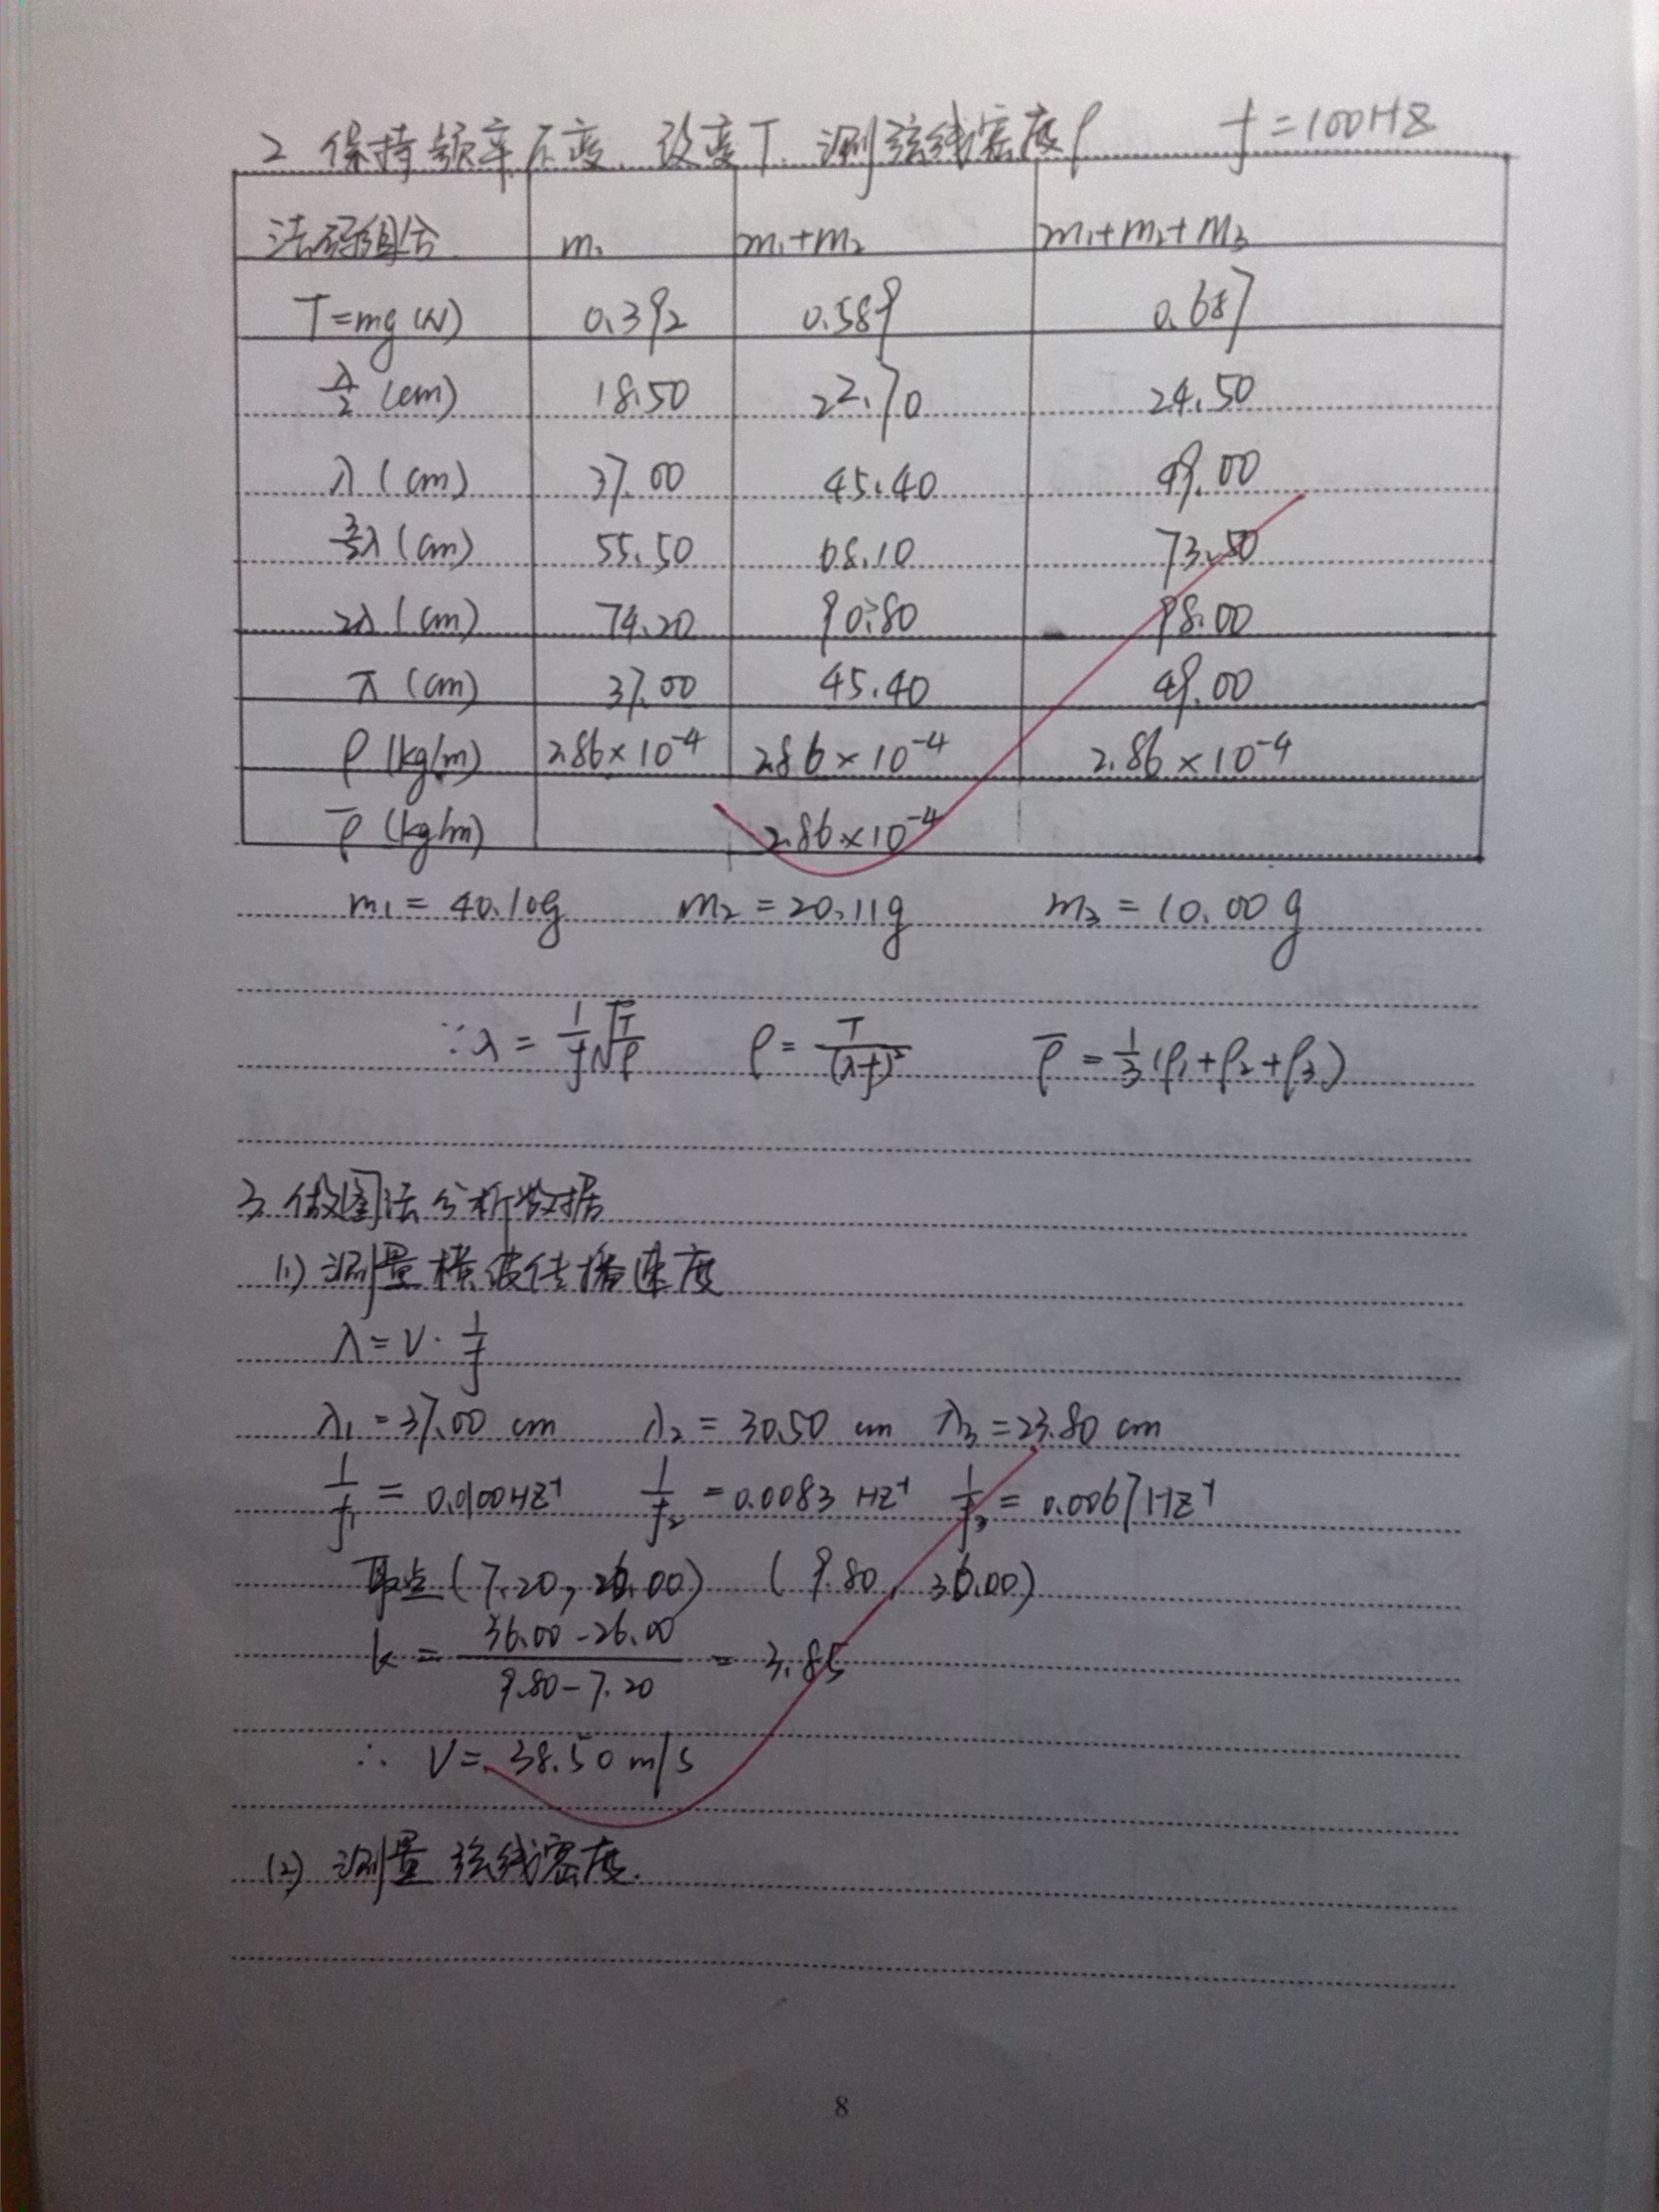 2 保持频率不变、改变T、测弦线密度ρ f=100HZ
法码组合 m₁ m₁+m₂ m₁+m₂+m₃
T=mg(N) 0.392 0.589 0.687
λ/2 (cm) 18.50 22.70 24.50
λ (cm) 37.00 45.40 49.00
3/2λ (cm) 55.50 68.10 73.50
2λ (cm) 74.20 90.80 98.00
λ̄ (cm) 37.00 45.40 49.00
ρ (kg/m) 2.86×10⁻⁴ 2.86×10⁻⁴ 2.86×10⁻⁴
ρ̄ (kg/m) 2.86×10⁻⁴
m₁=40.10g m₂=20.11g m₃=10.00g
∵λ=1/f√(T/ρ) ρ=T/(λf)² ρ̄=1/3(ρ₁+ρ₂+ρ₃)
3. 做图法分析数据
(1) 测量横波传播速度
λ=V·1/f
λ₁=37.00 cm λ₂=30.50 cm λ₃=23.80 cm
1/f₁=0.0100HZ⁻¹ 1/f₂=0.0083 HZ⁻¹ 1/f₃=0.0067HZ⁻¹
取点(7.20,26.00) (9.80,36.00)
k=(36.00-26.00)/(9.80-7.20)=3.85
∴ V=38.50m/s
(2) 测量弦线密度.
8